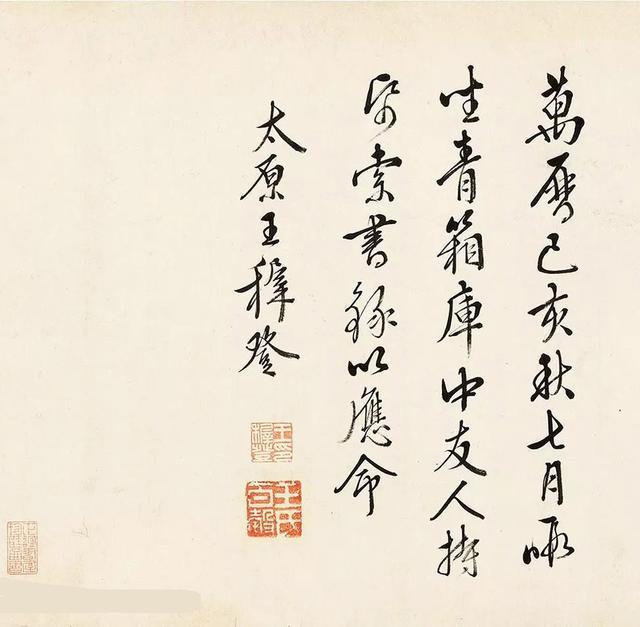 萬曆己亥秋七月晦
坐青箱庫中友人持
帋索書錄以應命
太原王穉登
王印穉登
王氏百穀